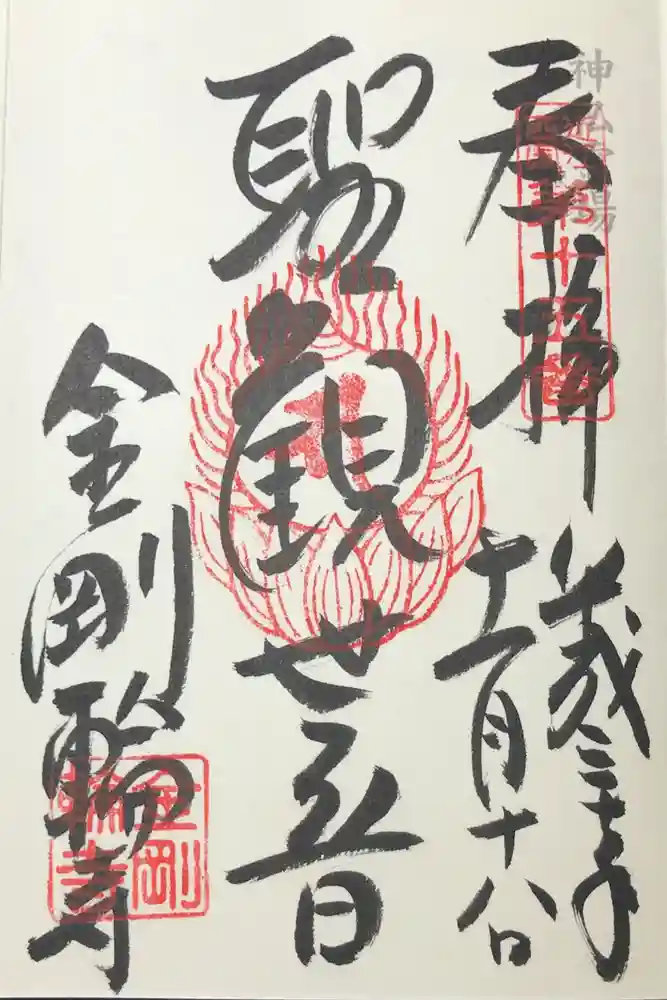 神仏霊場
第十五番
奉拝
平成三十年
十一月十八日
聖観世音
金剛輪寺
金剛
輪寺